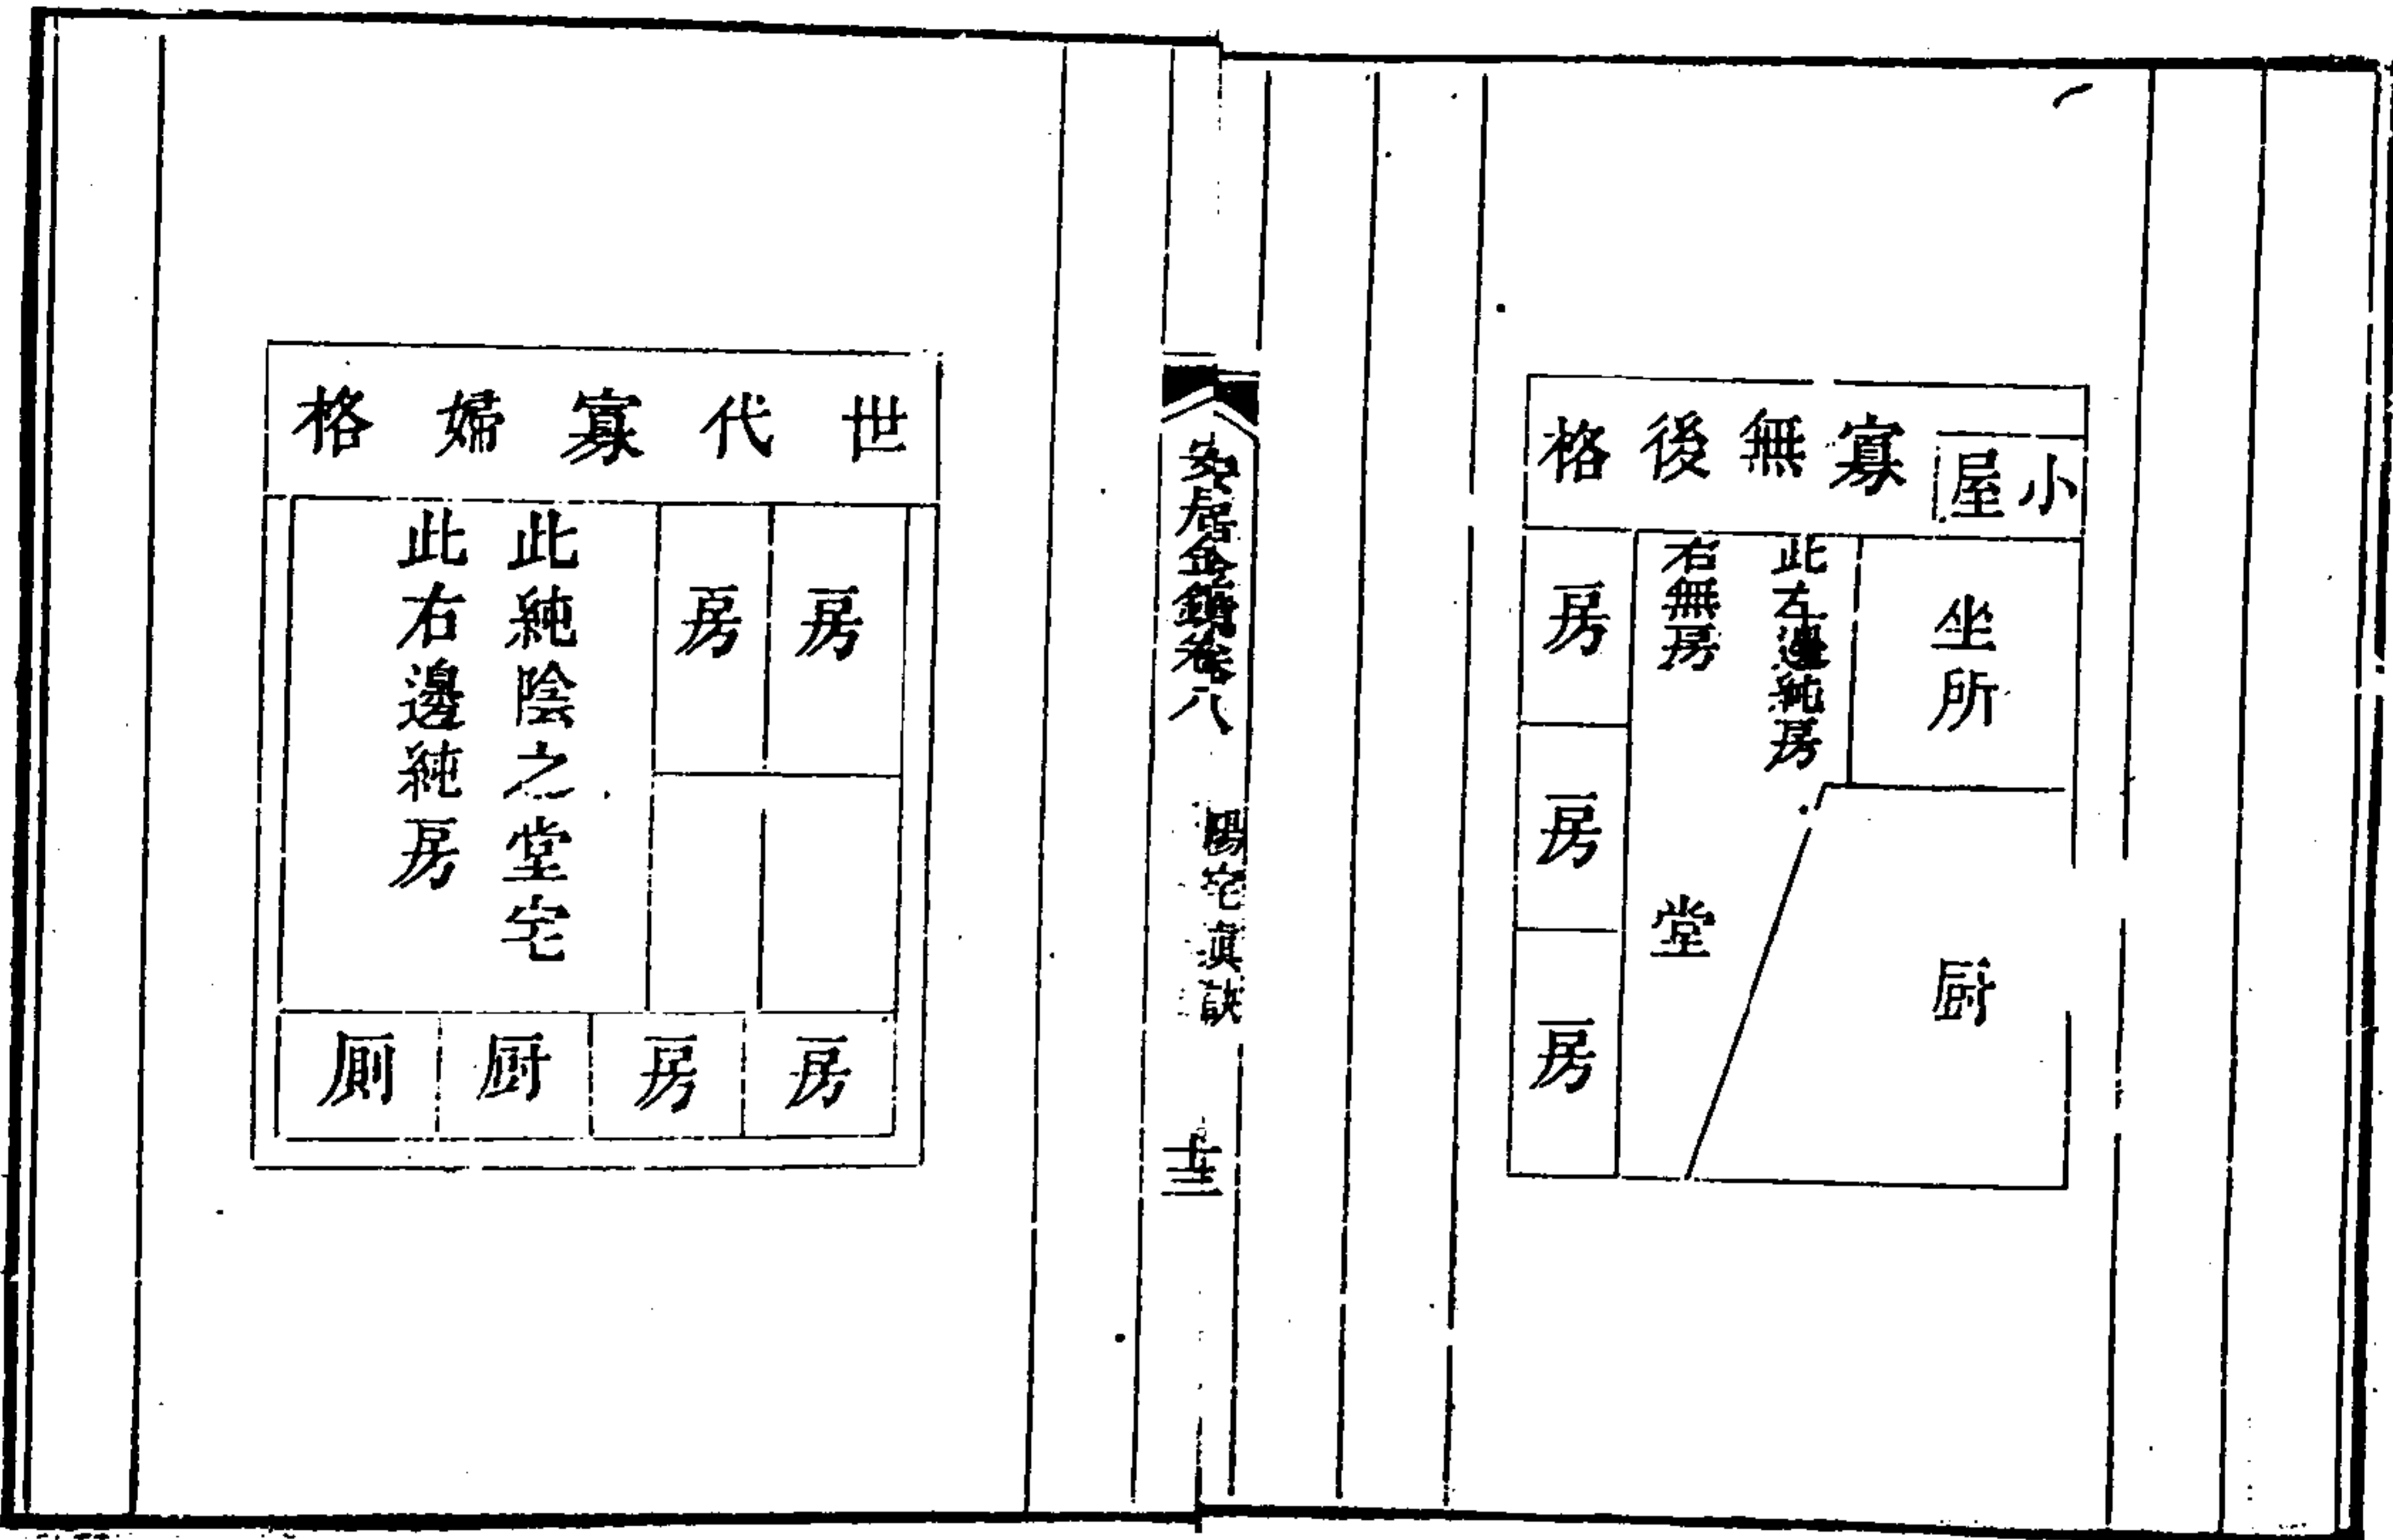 小屋
寡無後格
坐所
此左邊純房
右無房
厨
堂
房
房
房
安居金鏡卷八
陽宅真訣
十三
世代寡婦格
房
房
此純陰之堂宅
此右邊純房
房
房
厨
厠